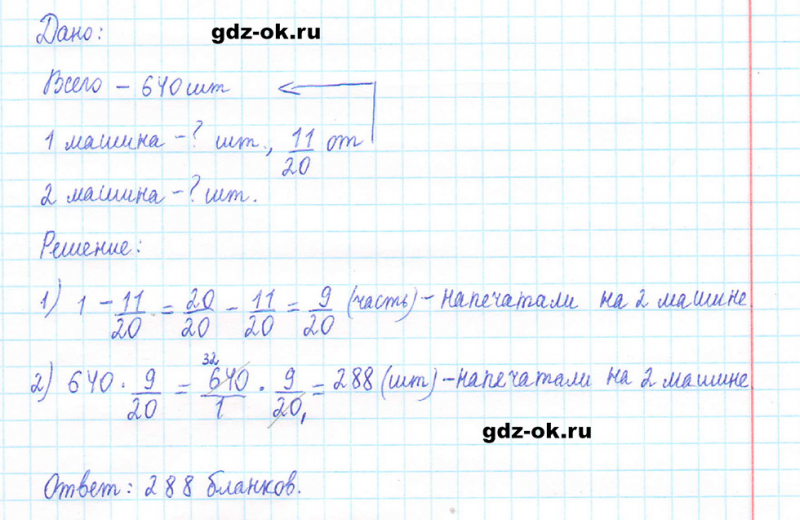 Дано:
gdz-ok.ru
Всего - 640 шт
1 машина - ? шт., 11/20 от
2 машина - ? шт.
Решение:
1) 1 - 11/20 = 20/20 - 11/20 = 9/20 (часть) - напечатали на 2 машине.
2) 640 · 9/20 = 32 640/1 · 9/20 1 = 288 (шт) - напечатали на 2 машине.
gdz-ok.ru
Ответ: 288 бланков.